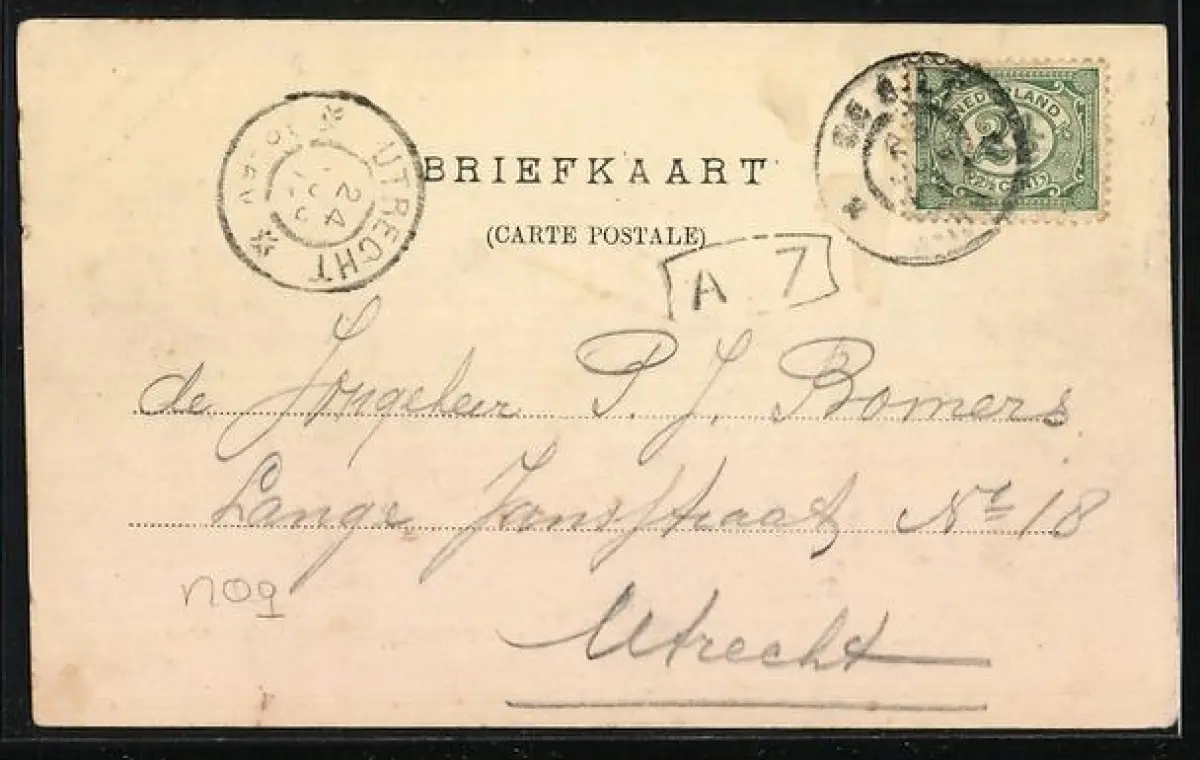 BRIEFKAART
(CARTE POSTALE)
UTRECHT
24
NEDERLAND
2½
(2½ CENT)
A 7
de Jongeheer P. J. Bomers
Lange Jansstraat No 18
nog
Utrecht